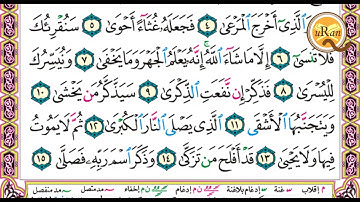 وَٱلَّذِىٓ أَخْرَجَ ٱلْمَرْعَىٰ ٤ فَجَعَلَهُۥ غُثَآءً أَحْوَىٰ ٥ سَنُقْرِئُكَ
فَلَا تَنسَىٰٓ ٦ إِلَّا مَا شَآءَ ٱللَّهُ إِنَّهُۥ يَعْلَمُ ٱلْجَهْرَ وَمَا يَخْفَىٰ ٧ وَنُيَسِّرُكَ
لِلْيُسْرَىٰ ٨ فَذَكِّرْ إِن نَّفَعَتِ ٱلذِّكْرَىٰ ٩ سَيَذَّكَّرُ مَن يَخْشَىٰ ١٠
وَيَتَجَنَّبُهَا ٱلْأَشْقَى ١١ ٱلَّذِى يَصْلَى ٱلنَّارَ ٱلْكُبْرَىٰ ١٢ ثُمَّ لَا يَمُوتُ
فِيهَا وَلَا يَحْيَىٰ ١٣ قَدْ أَفْلَحَ مَن تَزَكَّىٰ ١٤ وَذَكَرَ ٱسْمَ رَبِّهِۦ فَصَلَّىٰ ١٥
uRan
م إقلاب غنة إدغام بلاغنة ن م إدغام ن م إخفاء مد متصل مد منفصل